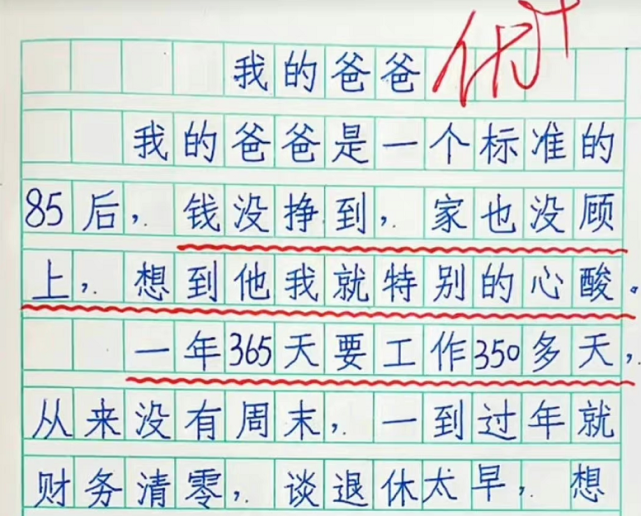 我的爸爸 优+
我的爸爸是一个标准的
85后，钱没挣到，家也没顾
上，想到他我就特别的心酸。
一年365天要工作350多天，
从来没有周末，一到过年就
财务清零，谈退休太早，想